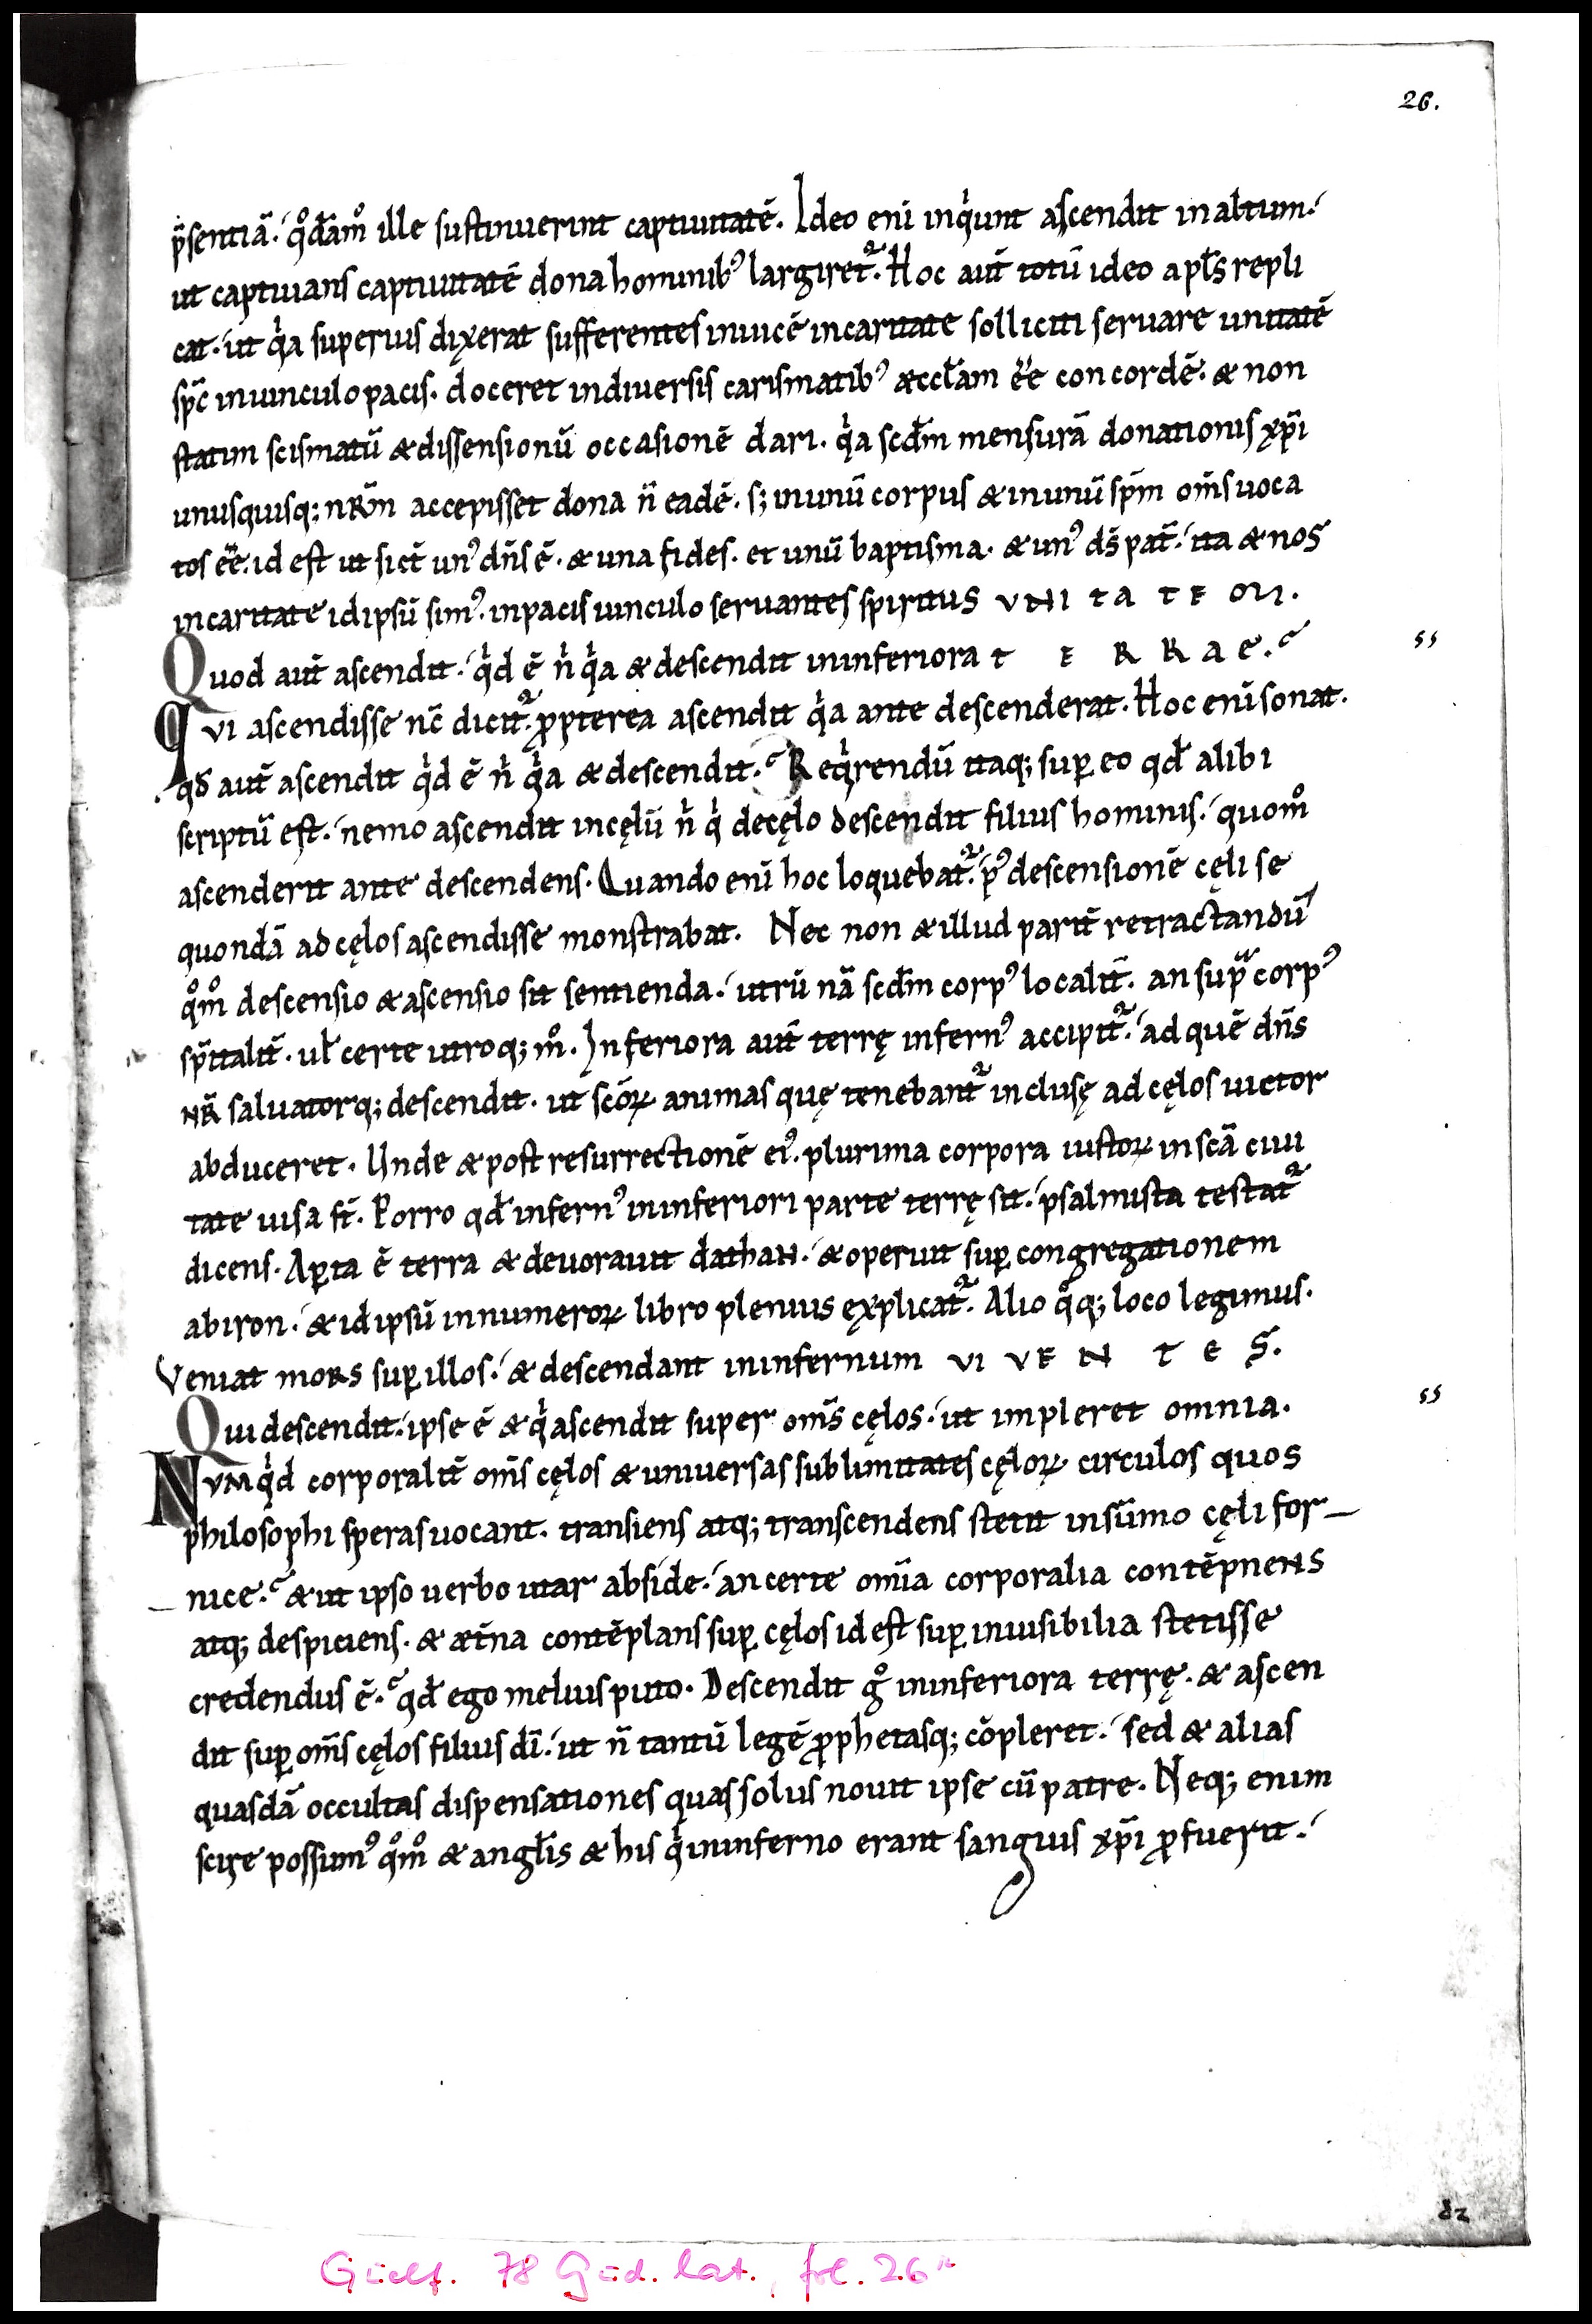 26.
p̄sentiā. qͦdāmͦ ille sustinuerint captiuitatē. Ideo eni̅ inqͥunt ascendit in altum.
ut captiuans captiuitatē dona hominibꝰ largiret᷑. Hoc aut̄ totū ideo apl̄s repli
cat. ut qͥa superius dixerat sufferentes inuicē in caritate solliciti seruare unitatē
sp̄c in uinculo pacis. doceret in diuersis carismatibꝰ æccl̄am ee̅ concordē. & non
statim scismatū & dissensionū occasionē dari. qͥa scd̄m mensurā donationis xp̄i
unusquisq; nr̄m accepisset dona n̄ eadē. s; in unū corpus & in unū sp̄m om̄s uoca
tos ee̅. id est ut sict̄ unꝰ dn̄s ē. & una fides. et unū baptisma. & unꝰ ds̄ pat̄. ita & nos
in caritate id ipsū simꝰ. in pacis uinculo seruantes spiritus VNITATEM.
Quod aut̄ ascendit. qͥd ē nͥ qͥa & descendit in inferiora tERRae. ss
Qvi ascendisse nc̄ dicit᷑. ꝓpterea ascendit qͥa ante descenderat. Hoc eni̅ sonat.
qd̄ aut̄ ascendit qͥd ē nͥ qͥa & descendit. Reqͥrendū itaq; suꝑ eo qd̄ alibi
scriptū est. nemo ascendit in cęlū nͥ qͥ de cęlo descendit filius hominis. quomͦ
ascenderit ante descendens. Quando eni̅ hoc loquebat᷑. pꝰ descensionē cęli se
quondā ad cęlos ascendisse monstrabat. Nec non & illud parit̄ retractandū
qͦmͦ descensio & ascensio sit sentienda. utrū nā scd̄m corpꝰ localit̄. an supͣ corpꝰ
sp̄italit̄. ul̄ certe utroq; mͦ. Inferiora aut̄ terrę infernꝰ accipit᷑. ad quē dn̄s
nr̄ saluatorq; descendit. ut sc̄oꝝ animas quę tenebant᷑ inclusę ad cęlos uictor
abduceret. Unde & post resurrectionē eiꝰ. plurima corpora iustoꝝ in scā ciui
tate uisa st̄. Porro qd̄ infernꝰ in inferiori parte terrę sit. psalmista testat᷑
dicens. Aꝑta ē terra & deuorauit dathan. & operuit suꝑ congregationem
abiron. & id ipsū in numeroꝝ libro plenius explicat᷑. Alio qͦq; loco legimus.
Veniat mors suꝑ illos. & descendant in infernum VIVENTES.
Qui descendit. ipse ē & qͥ ascendit super om̄s cęlos. ut impleret omnia. ss
Nvmqͥd corporalit̄ om̄s cęlos & uniuersas sublimitates cęloꝝ circulos quos
philosophi speras uocant. transiens atq; transcendens stetit in sūmo cęli for-
-nice. & ut ipso uerbo utar abside. an certe om̄ia corporalia contēpnens
atq; despiciens. & æt̄na contēplans suꝑ cęlos id est suꝑ inuisibilia stetisse
credendus ē. qd̄ ego melius puto. Descendit gͦ in inferiora terrę. & ascen
dit suꝑ om̄s cęlos filius dī. ut n̄ tantū legē ꝓphetasq; cōpleret. sed & alias
quasdā occultas dispensationes quas solus nouit ipse cū patre. Neq; enim
scire possumꝰ qͦmͦ & angl̄is & his qͥ in inferno erant sanguis xp̄i ꝓfuerit.
Guelf. 78 Gud. lat., fol. 26r